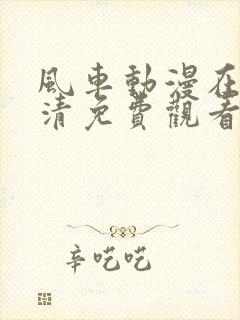 風車動漫在
清免費觀看
辛吃吃